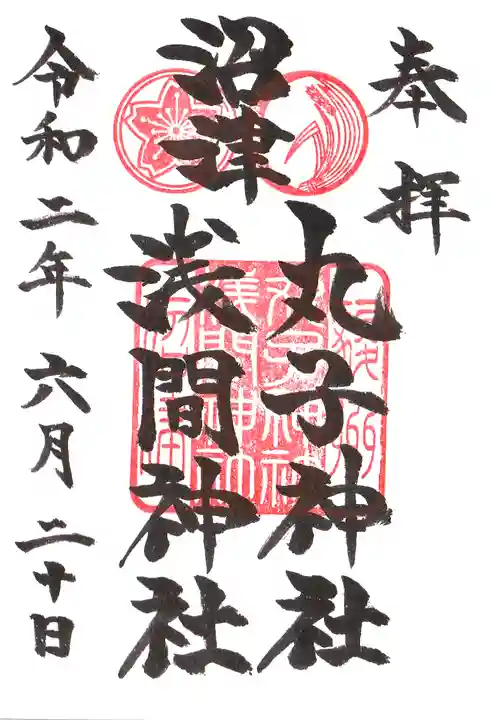 奉拝
沼津
丸子神社
浅間神社
令和二年六月二十日